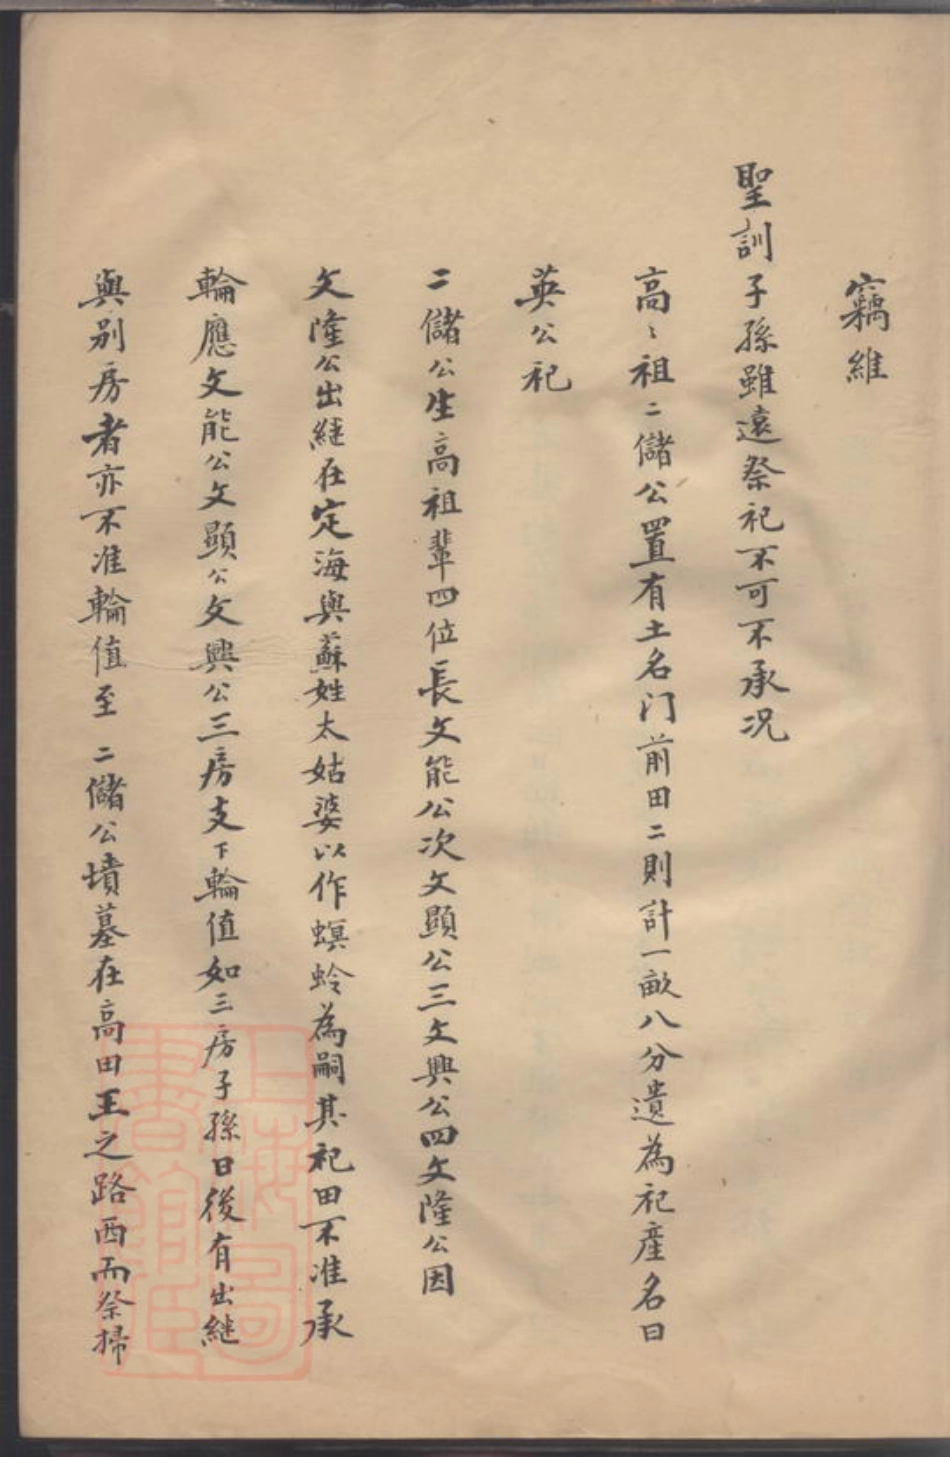 竊維
聖訓子孫雖遠祭祀不可不承况
高〻祖二儲公置有土名门前田二則計一畝八分遺為祀產名曰
英公祀
二儲公生高祖輩四位長文能公次文顯公三文興公四文隆公因
文隆公出継在定海與蘇姓太姑婆以作螟蛉為嗣其祀田不准承
輪應文能公文顯公文興公三房支下輪值如三房子孫日後有出継
與別房者亦不准輪值至二儲公墳墓在高田王之路西而祭掃
上海圖書館藏